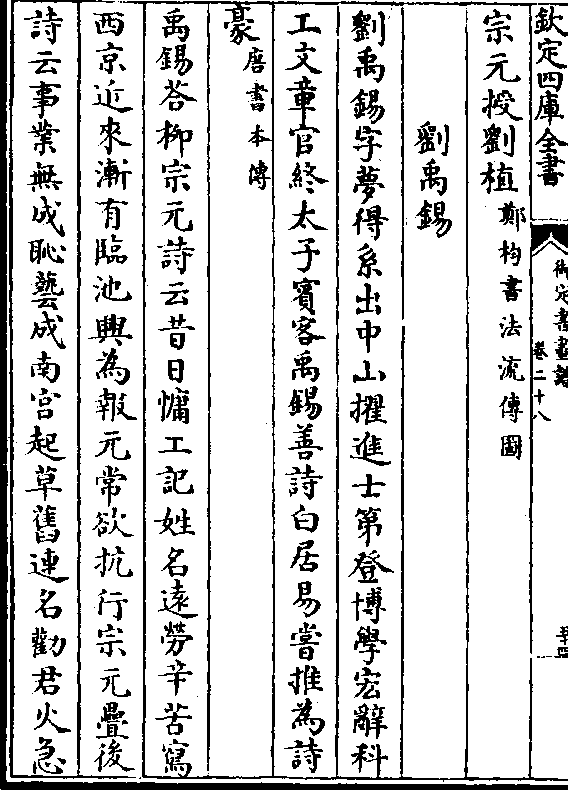 欽定四庫全書
御定書畫譜
卷二十八
宗元授劉植鄭杓書法流傳圖
劉禹錫
劉禹錫字夢得系出中山擢進士第登博學宏辭科
工文章官終太子賓客禹錫善詩白居易嘗推為詩
豪唐書本傳
禹錫荅柳宗元詩云昔日慵工記姓名遠勞辛苦寫
西京近來漸有臨池興為報元常欲抗行宗元疊後
詩云事業無成恥藝成南宫起草舊連名勸君火急